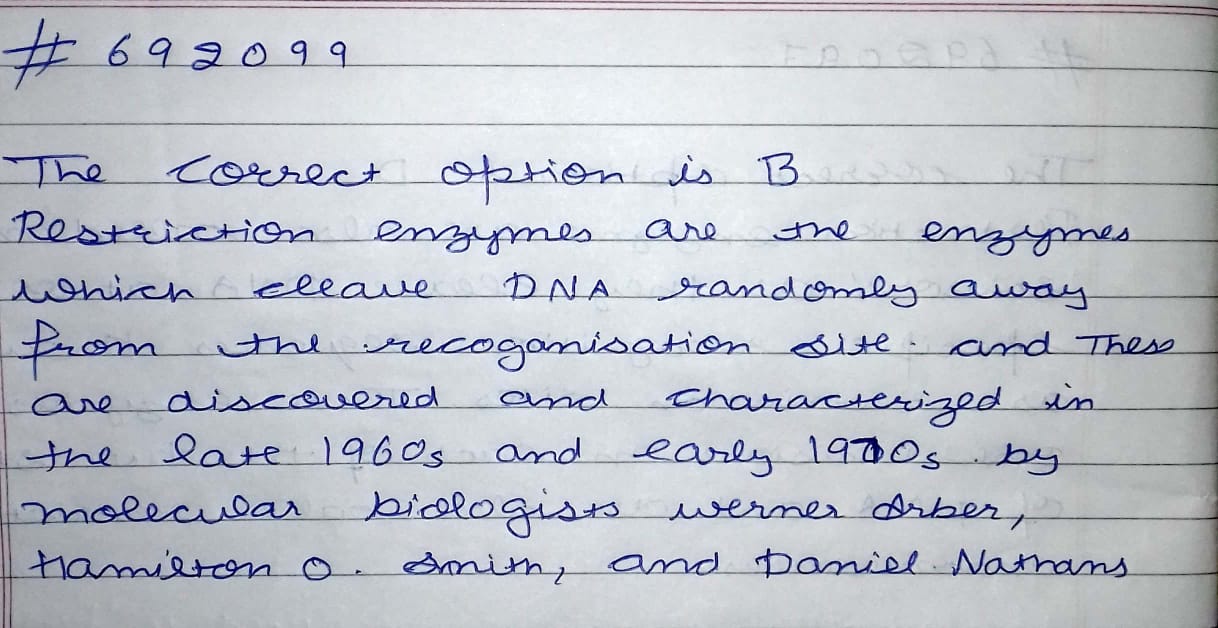 # 692099
The correct option is B
Restriction enzymes are the enzymes
which cleave DNA randomly away
from the recoganisation site. and These
are discovered and characterized in
the late 1960s and early 1970s by
molecular biologists werner Arber,
Hamilton O. Smith, and Daniel Nathans